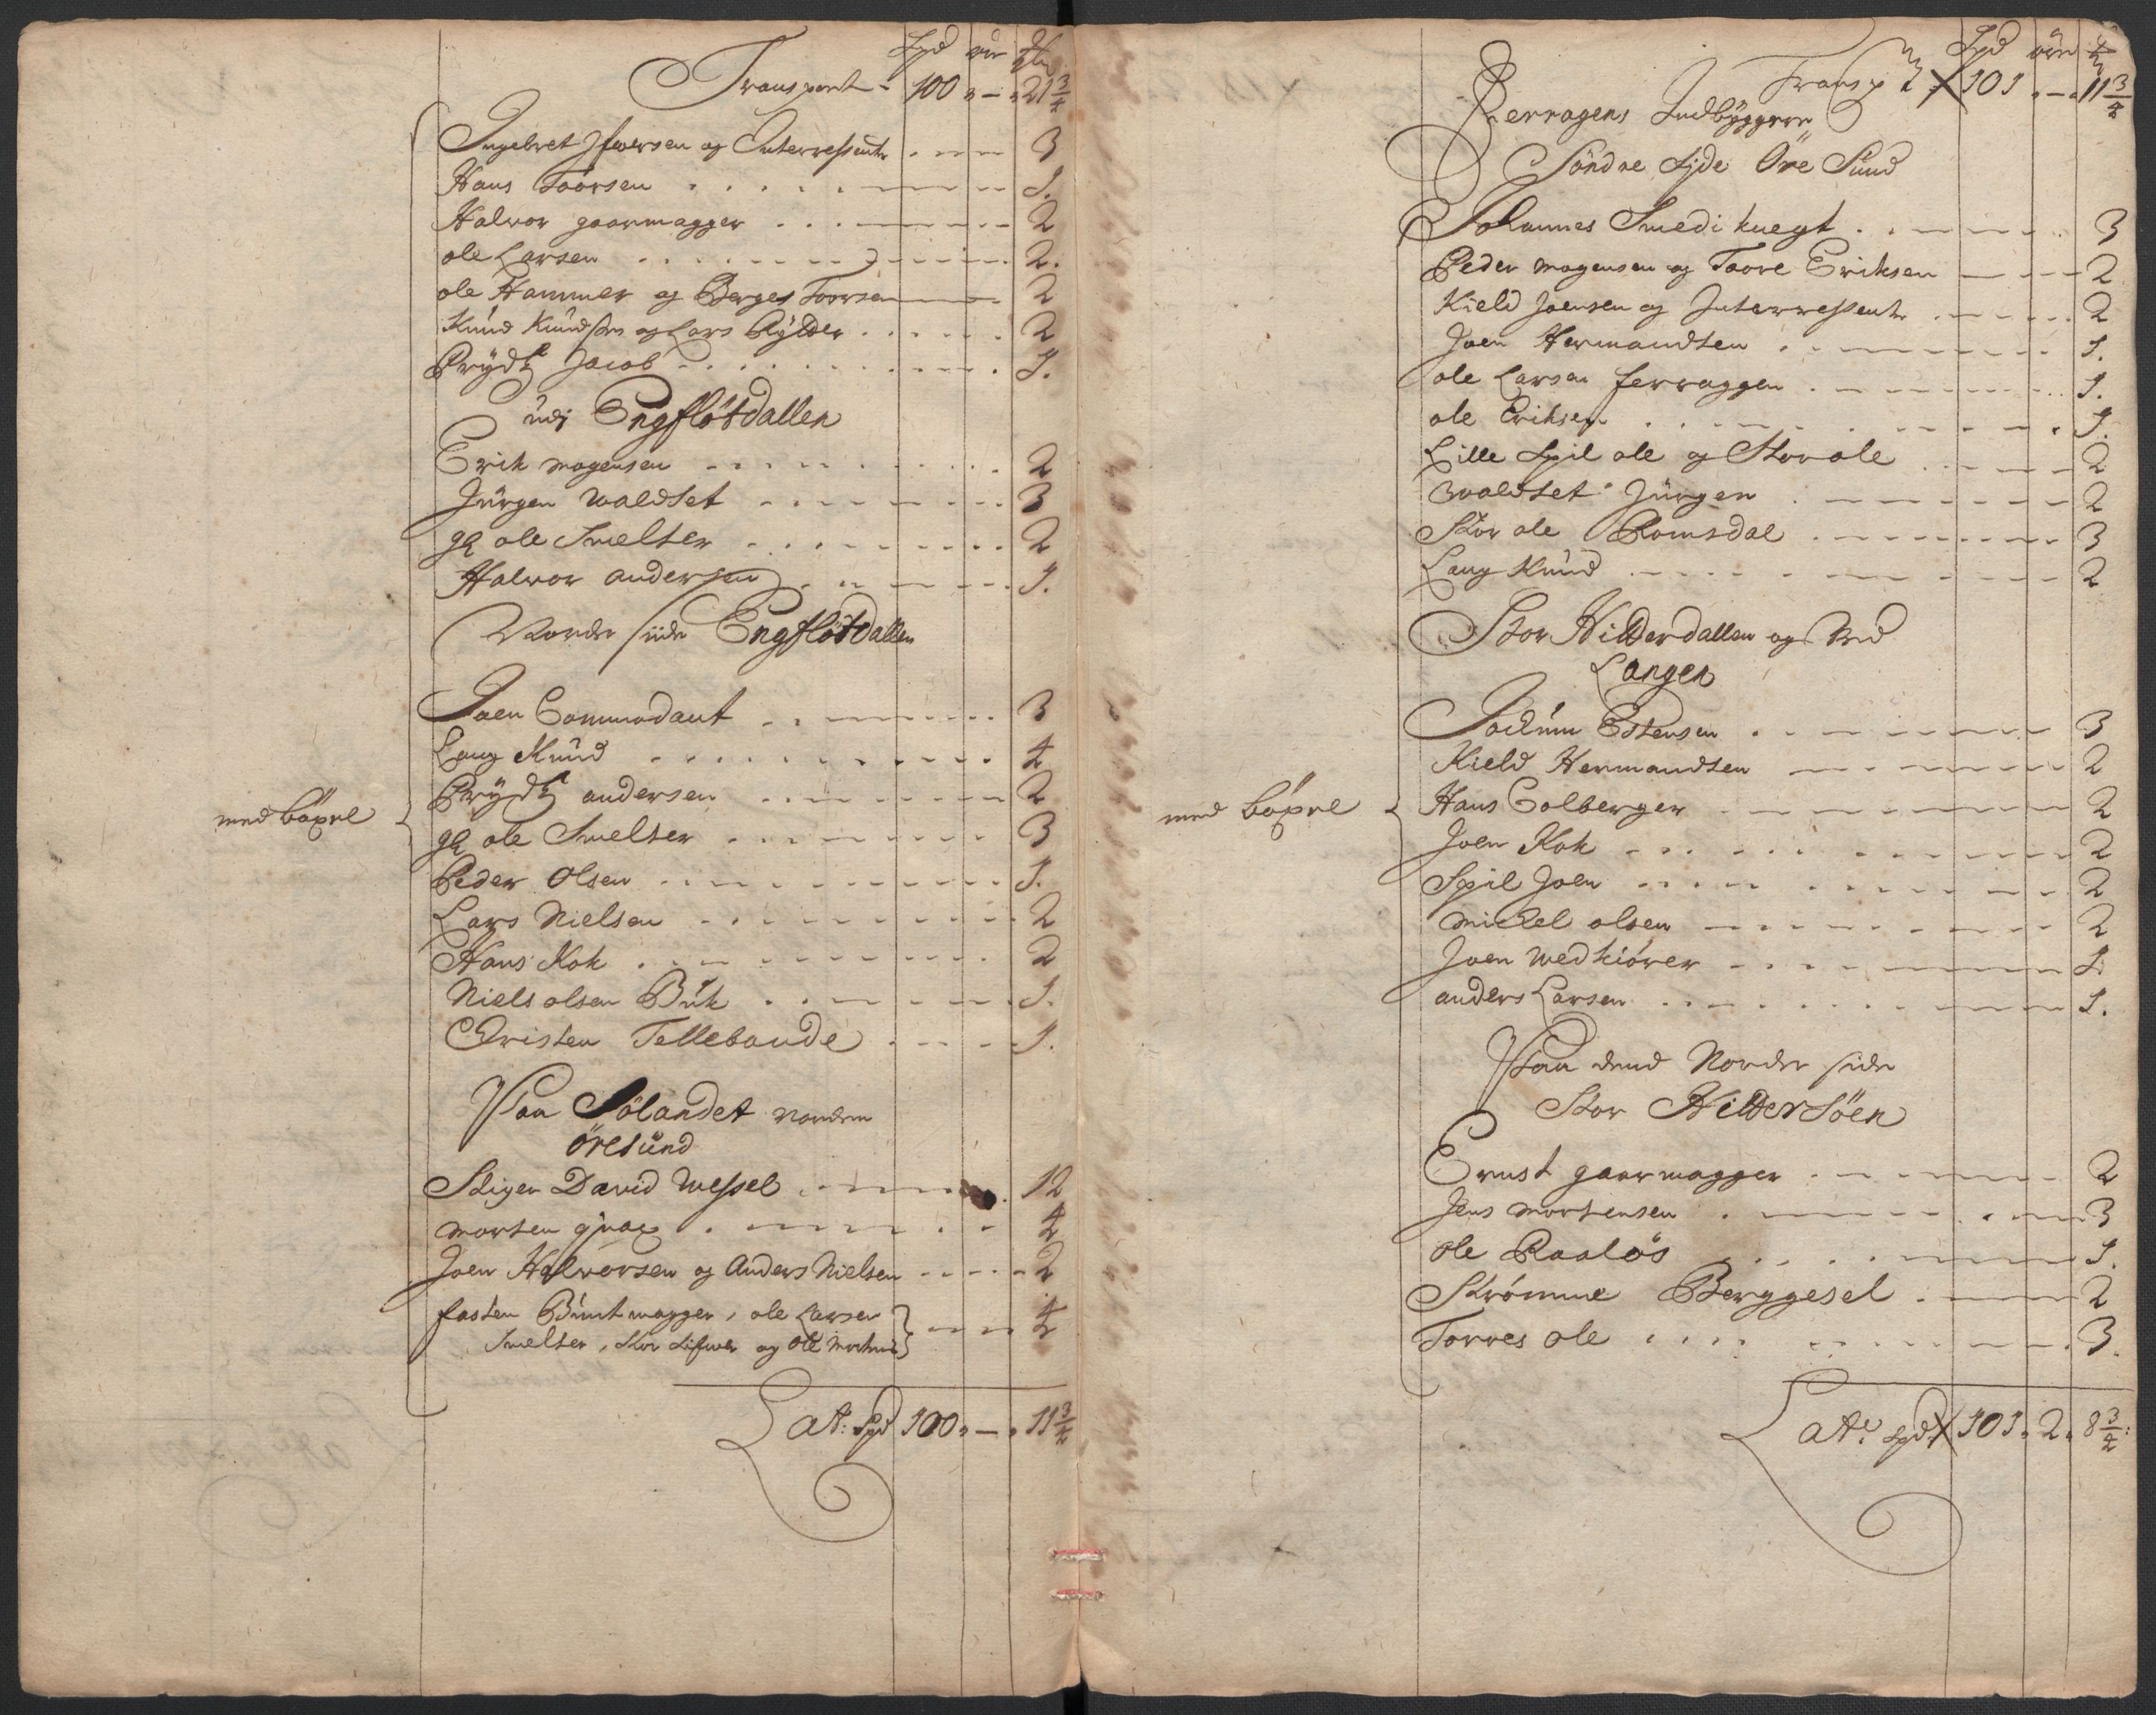 Lpd mr
Transport - 100 „ — „ 21 3/4
Ingebret Ifwersen og Interressentr 3
Hans Toorsen 1.
Halvor gaarmagger 2
ole Larsen 2.
ole Hammer og Berges Toorsen 2
Knud Knudsen og Lars Rylder 2
Prydtz Jacob 1.
udj Engfløtdallen
Erik Mogensen 2
Jürgen Waldset 3
gl ole Smelter 2
Halvor andersen 1.
Nordre side Engfløtdallen
Joen Commodant 3
Lang Knud 4
Prydtz andersen 2
med böxel
gl ole Smelter 3
Peder Olsen 1.
Lars Nielsen 2
Hans Kok 2
Niels olsen Buk 1.
Christen Tellebonde 1.
Paa Sölandet norden
öresund
Stiger David Wessel 12
morten qvax 4
Joen Halvorsen og Anders Nielsen 2
fasten Bundtmagger, ole Larsen
Smelter, Stor Sifwer og ole Mortens 4
Lat: Lpd 100 „ — „ 11 3/4
Lpd mr
Transpt 101 „ — „ 11 3/4
Ferragens Indbyggere
Söndre Syde Öre Sund
Johannes Smedi knegt 3
Peder Mogensen og Toore Eriksen 2
Kield Joensen og Interressentr 2
Joen Hermandsen 1.
ole Larsen ferraggen 1.
ole Eriksen 1.
Lille Spil ole og Stor ole 2
Waldset Jürgen 2
Stor ole Romsdal 3
Lang Knud 2
Stor Hitterdallen og Ved
Langen
Joclum Estensen 3
Kield Hermandsen 2
med böxel
Hans Colberger 2
Joen Kok 2
Spil Joen 2
Michel olsen 2
Joen Wedkiörer 1.
anders Larsen 1.
Paa dend Nordre side
Stor Hittersöen
Ernst gaarmagger 2
Jens Mortensen 3
ole Raalös 1.
Strömme Berggesel 2
Torres ole 3.
Lat: Lpd 101 „ 2 „ 8 3/4